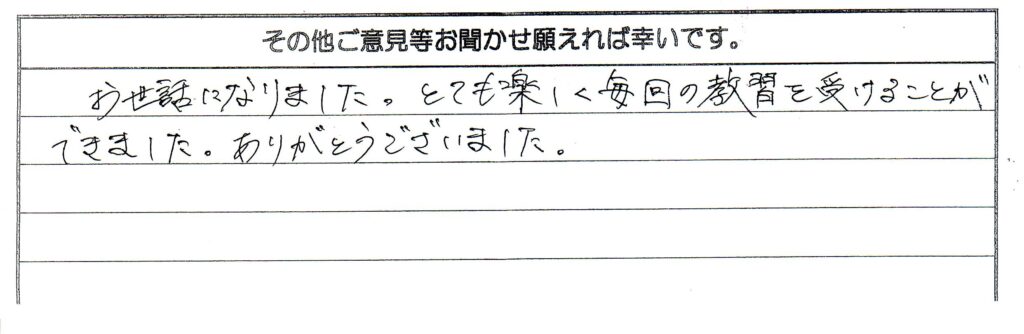 その他ご意見等お聞かせ願えれば幸いです。
お世話になりました。とても楽しく毎回の教習を受けることが
できました。ありがとうございました。